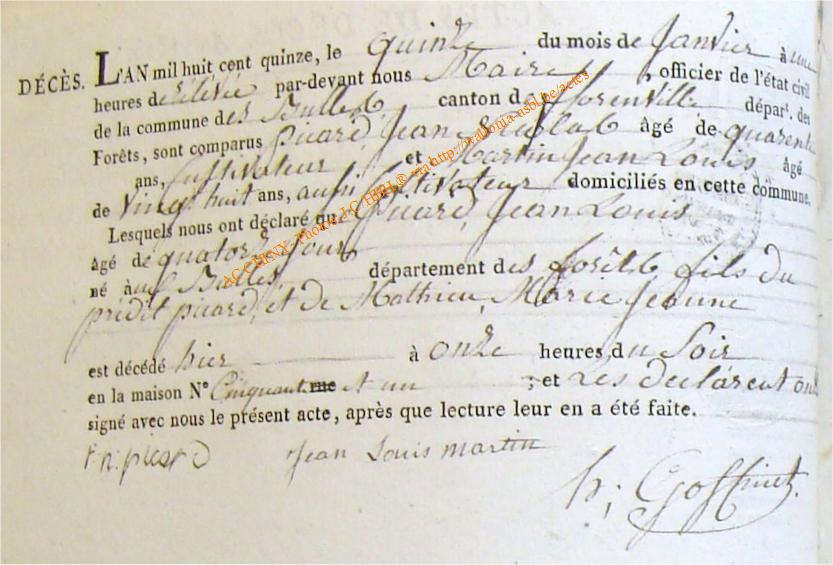 DÉCÈS. L'AN mil huit cent quinze, le quinze du mois de Janvier à une
heures de relevée par-devant nous Maire, officier de l'état civil
de la commune des Bulles, canton de florenville dépar.t des
Forêts, sont comparus picard, Jean âgé de quarente
ans, Cultivateur et Martin Jean Louis âgé
de vingt huit ans, aussi Cultivateur domiciliés en cette commune.
Lesquels nous ont déclaré que Picard, Jean Louis
âgé de quatorze jours
né aux Bulles, département des forêts fils du
prédit picard, et de Mathieu, Marie Jeanne
est décédé hier à onze heures du Soir
en la maison N° Cinquante et un ; et Les déclarent ont
signé avec nous le présent acte, après que lecture leur en a été faite.
picard Jean Louis martin
h; Goffinet.
AC CHINY - Photos J.C. via http://wallonia-asbl.be/actes